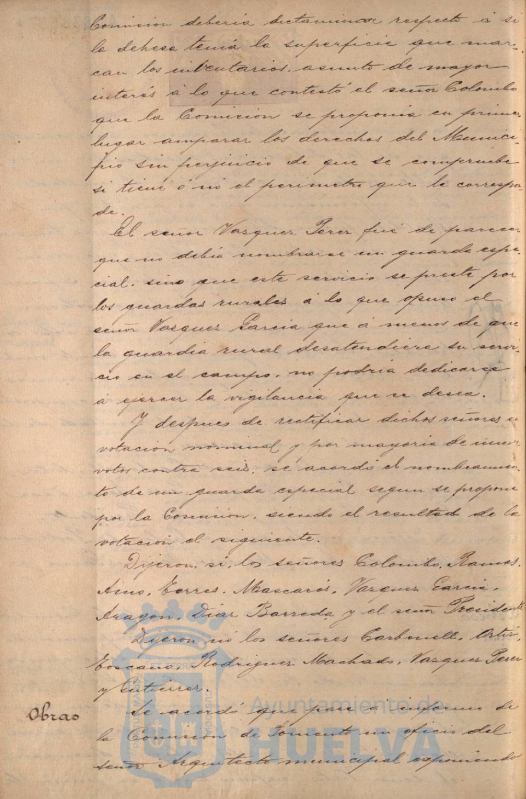 Comision deberia dictaminar respecto á si
la dehesa tenia la superficie que mar-
can los inventarios, asunto de mayor
interés á lo que contestó el señor Colombo
que la Comision se proponia en primer
lugar amparar los derechos del Munici-
pio sin perjuicio de que se compruebe
si tiene ó nó el perimetro que le correspon
de.
El señor Vazquez Perez fué de parecer
que no debia nombrarse un guarda espe-
cial, sino que este servicio se preste por
los guardas rurales á lo que opuso el
señor Vazquez Garcia que á menos de que
la guardia rural desatendiera su servi-
cio en el campo, no podria dedicarse
á ejercer la vigilancia que se desea.
Y despues de rectificar dichos señores en
votacion nominal y por mayoria de nueve
votos contra seis, se acordó el nombramien-
to de un guarda especial segun se propone
por la Comision, siendo el resultado de la
votacion el siguiente.
Dijeron, si, los señores Colombo, Ramos,
Torres, Mascarós, Vazquez Garcia,
Aragon, Diaz Barreda y el señor Presidente
Dijeron nó los señores Carbonell, Ortiz,
Toscano, Rodriguez Machado, Vazquez Perez
y Gutierrez.
Obras
Se acordó que pase á informe de
la Comision de Fomento un oficio del
señor Arquitecto municipal exponiendo
Ayuntamiento de
HUELVA